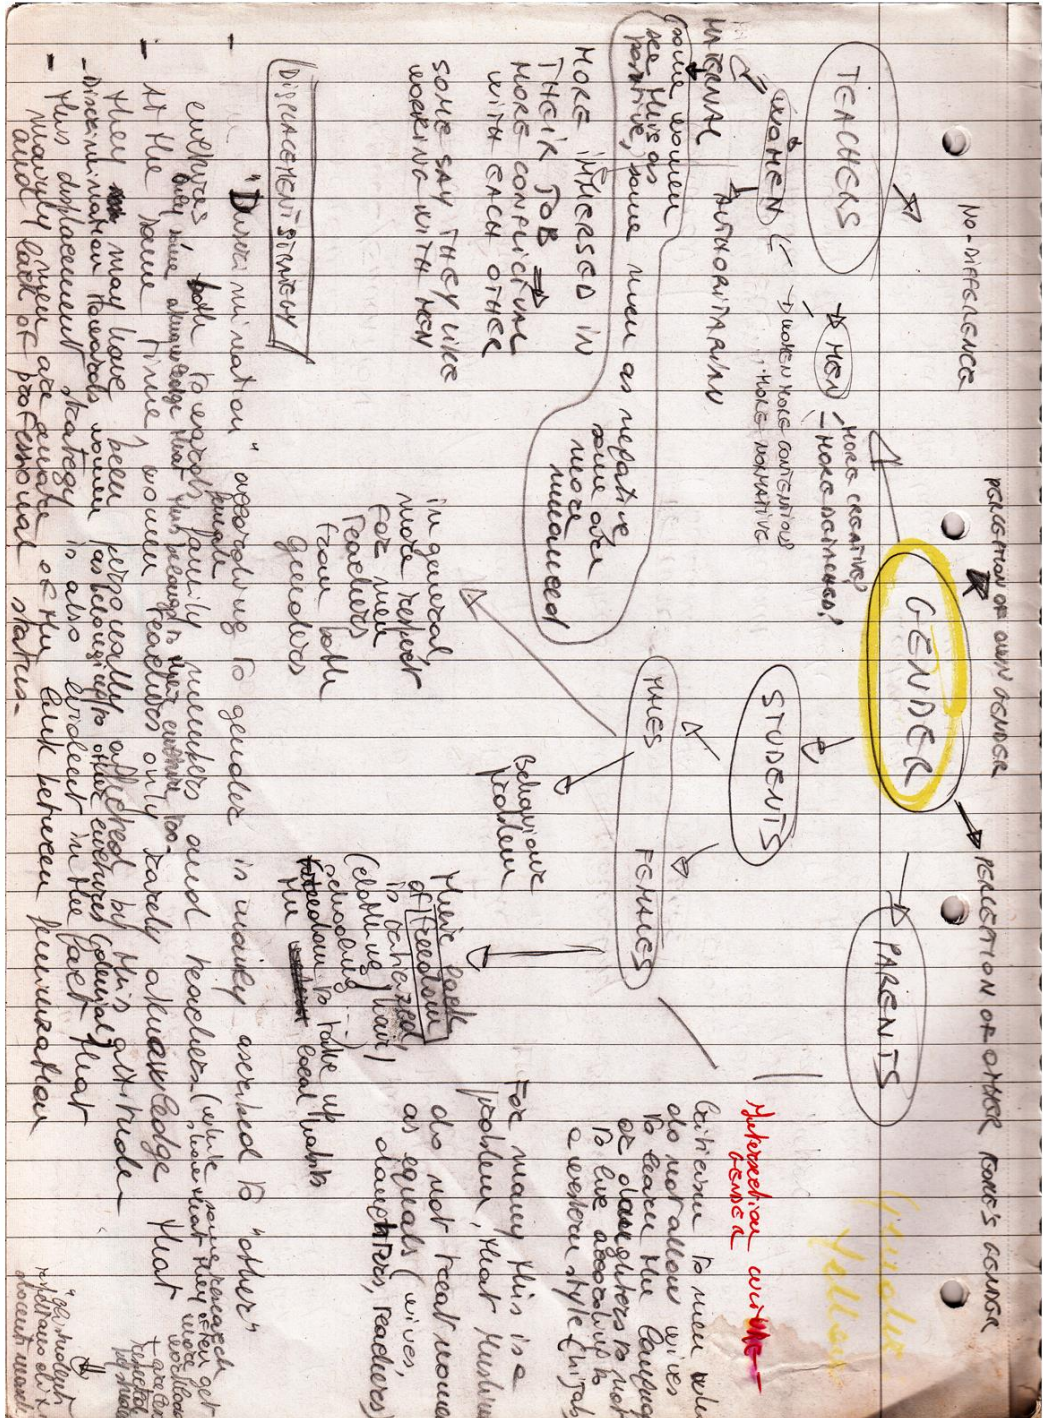 NO-DIFFERENCE
PERCEPTION OF OWN GENDER
PERCEPTION OF OTHER GENDER
TEACHERS
GENDER
PARENTS
STUDENTS
MEN
MORE CREATIVE?
MORE DETACHED?
WOMEN
WOMEN MORE CONTENTIOUS
MORE NORMATIVE
MATERNAL
AUTHORITARIAN
(some women
see this as
positive, some men as negative
some are
more
nuanced)
MORE IMMERSED IN
THEIR JOB
MORE CONFLICTUAL
WITH EACH OTHER
SOME SAY THEY LIKE
WORKING WITH MEN
MALES
FEMALES
in general
more respect
for men
teachers
from both
genders
Behaviour
problem
Their lack
of freedom
is criticized
(clothing, hair,
schooling
freedom to take up
the local habits
Intersection with
GENDER
Criticism to men who
do not allow wives
to learn the language
or daughters to not
to live according to
a western style (hijab
For many this is a
problem, that Muslims
do not treat women
as equals (wives,
daughters, teachers)
DISPLACEMENT STRATEGY
- "Discrimination" according to gender in mainly ascribed to "other"
cultures both towards family members and female teachers (while some
only some acknowledge that this belongs to their culture too-
- At the same time women teachers only rarely acknowledge that
they may have been personally affected by this attitude-
- Discrimination towards women as belonging to other cultures (general)
- this displacement strategy is also evident in the fact that
mainly men are aware of the link between feminization
and lack of professional status-